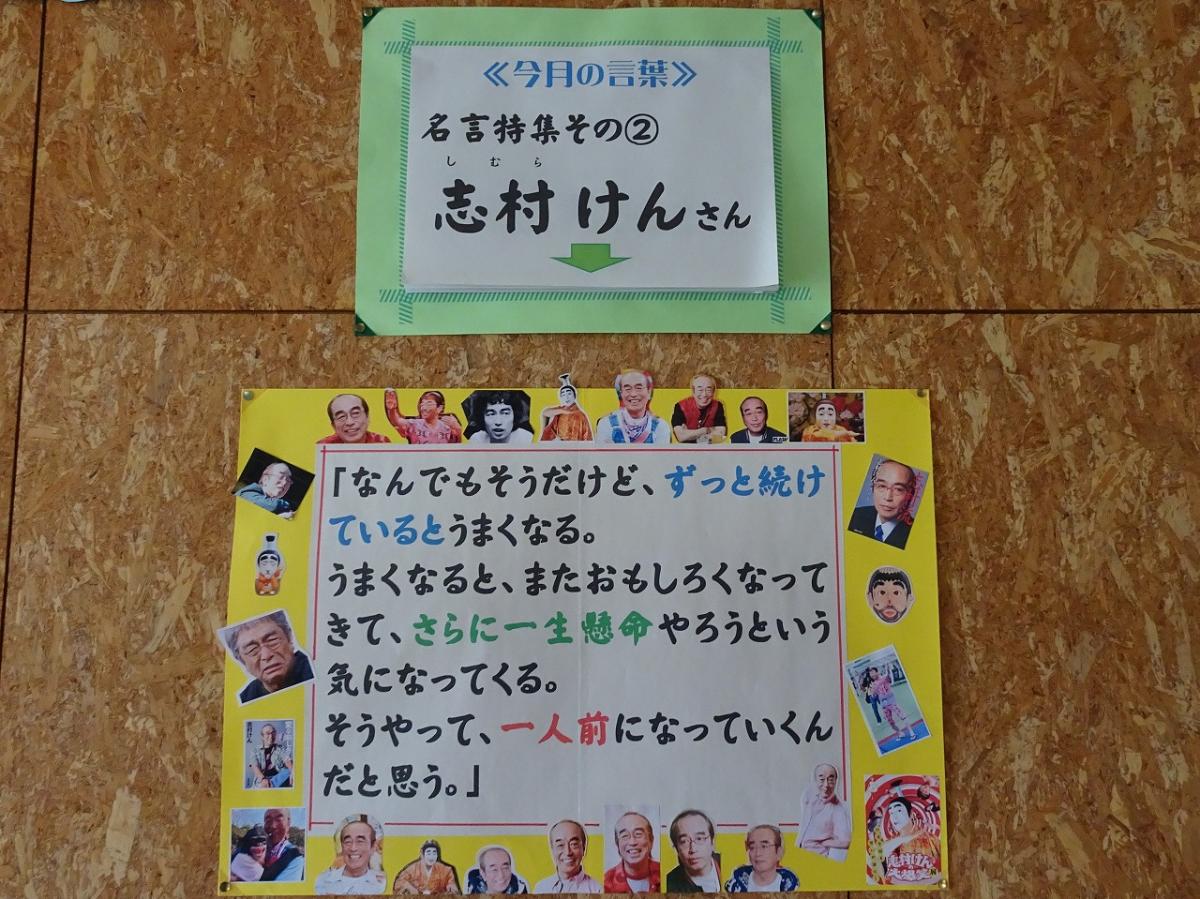 ≪今月の言葉≫
名言特集その②
しむら
志村 けんさん
「なんでもそうだけど、ずっと続け
ているとうまくなる。
うまくなると、またおもしろくなって
きて、さらに一生懸命やろうという
気になってくる。
そうやって、一人前になっていくん
だと思う。」
志村けん